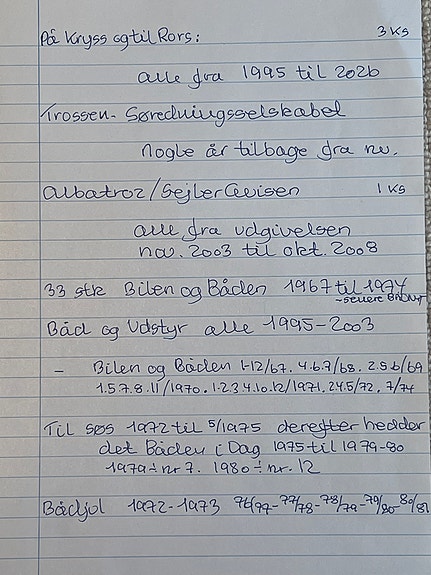 På Kryss og til Rors: 3 KS
alle fra 1995 til 2026
Trossen - Søredningsselskabel
nogle år tilbage fra nu.
Albatroz/SejlerAvisen 1 KS
alle fra udgivelsen
nov. 2003 til okt. 2008
33 stk Bilen og Båden 1967 til 1974
Båd og Udstyr alle 1995-2003
- Bilen og Båden 1-12/67. 4.6.7/68. 2.5.6/69
1.5.7.8.11/1970. 1.2.3.4.10.12/1971. 2.4.5/72. 7/74
Til søs 1972 til 5/1975 derefter hedder
det Båden i Dag 1975 til 1979-80
1979 ÷ nr 7. 1980 ÷ nr. 12
Bådjol 1972-1973 76/77-77/78-78/79-79/80-80/81